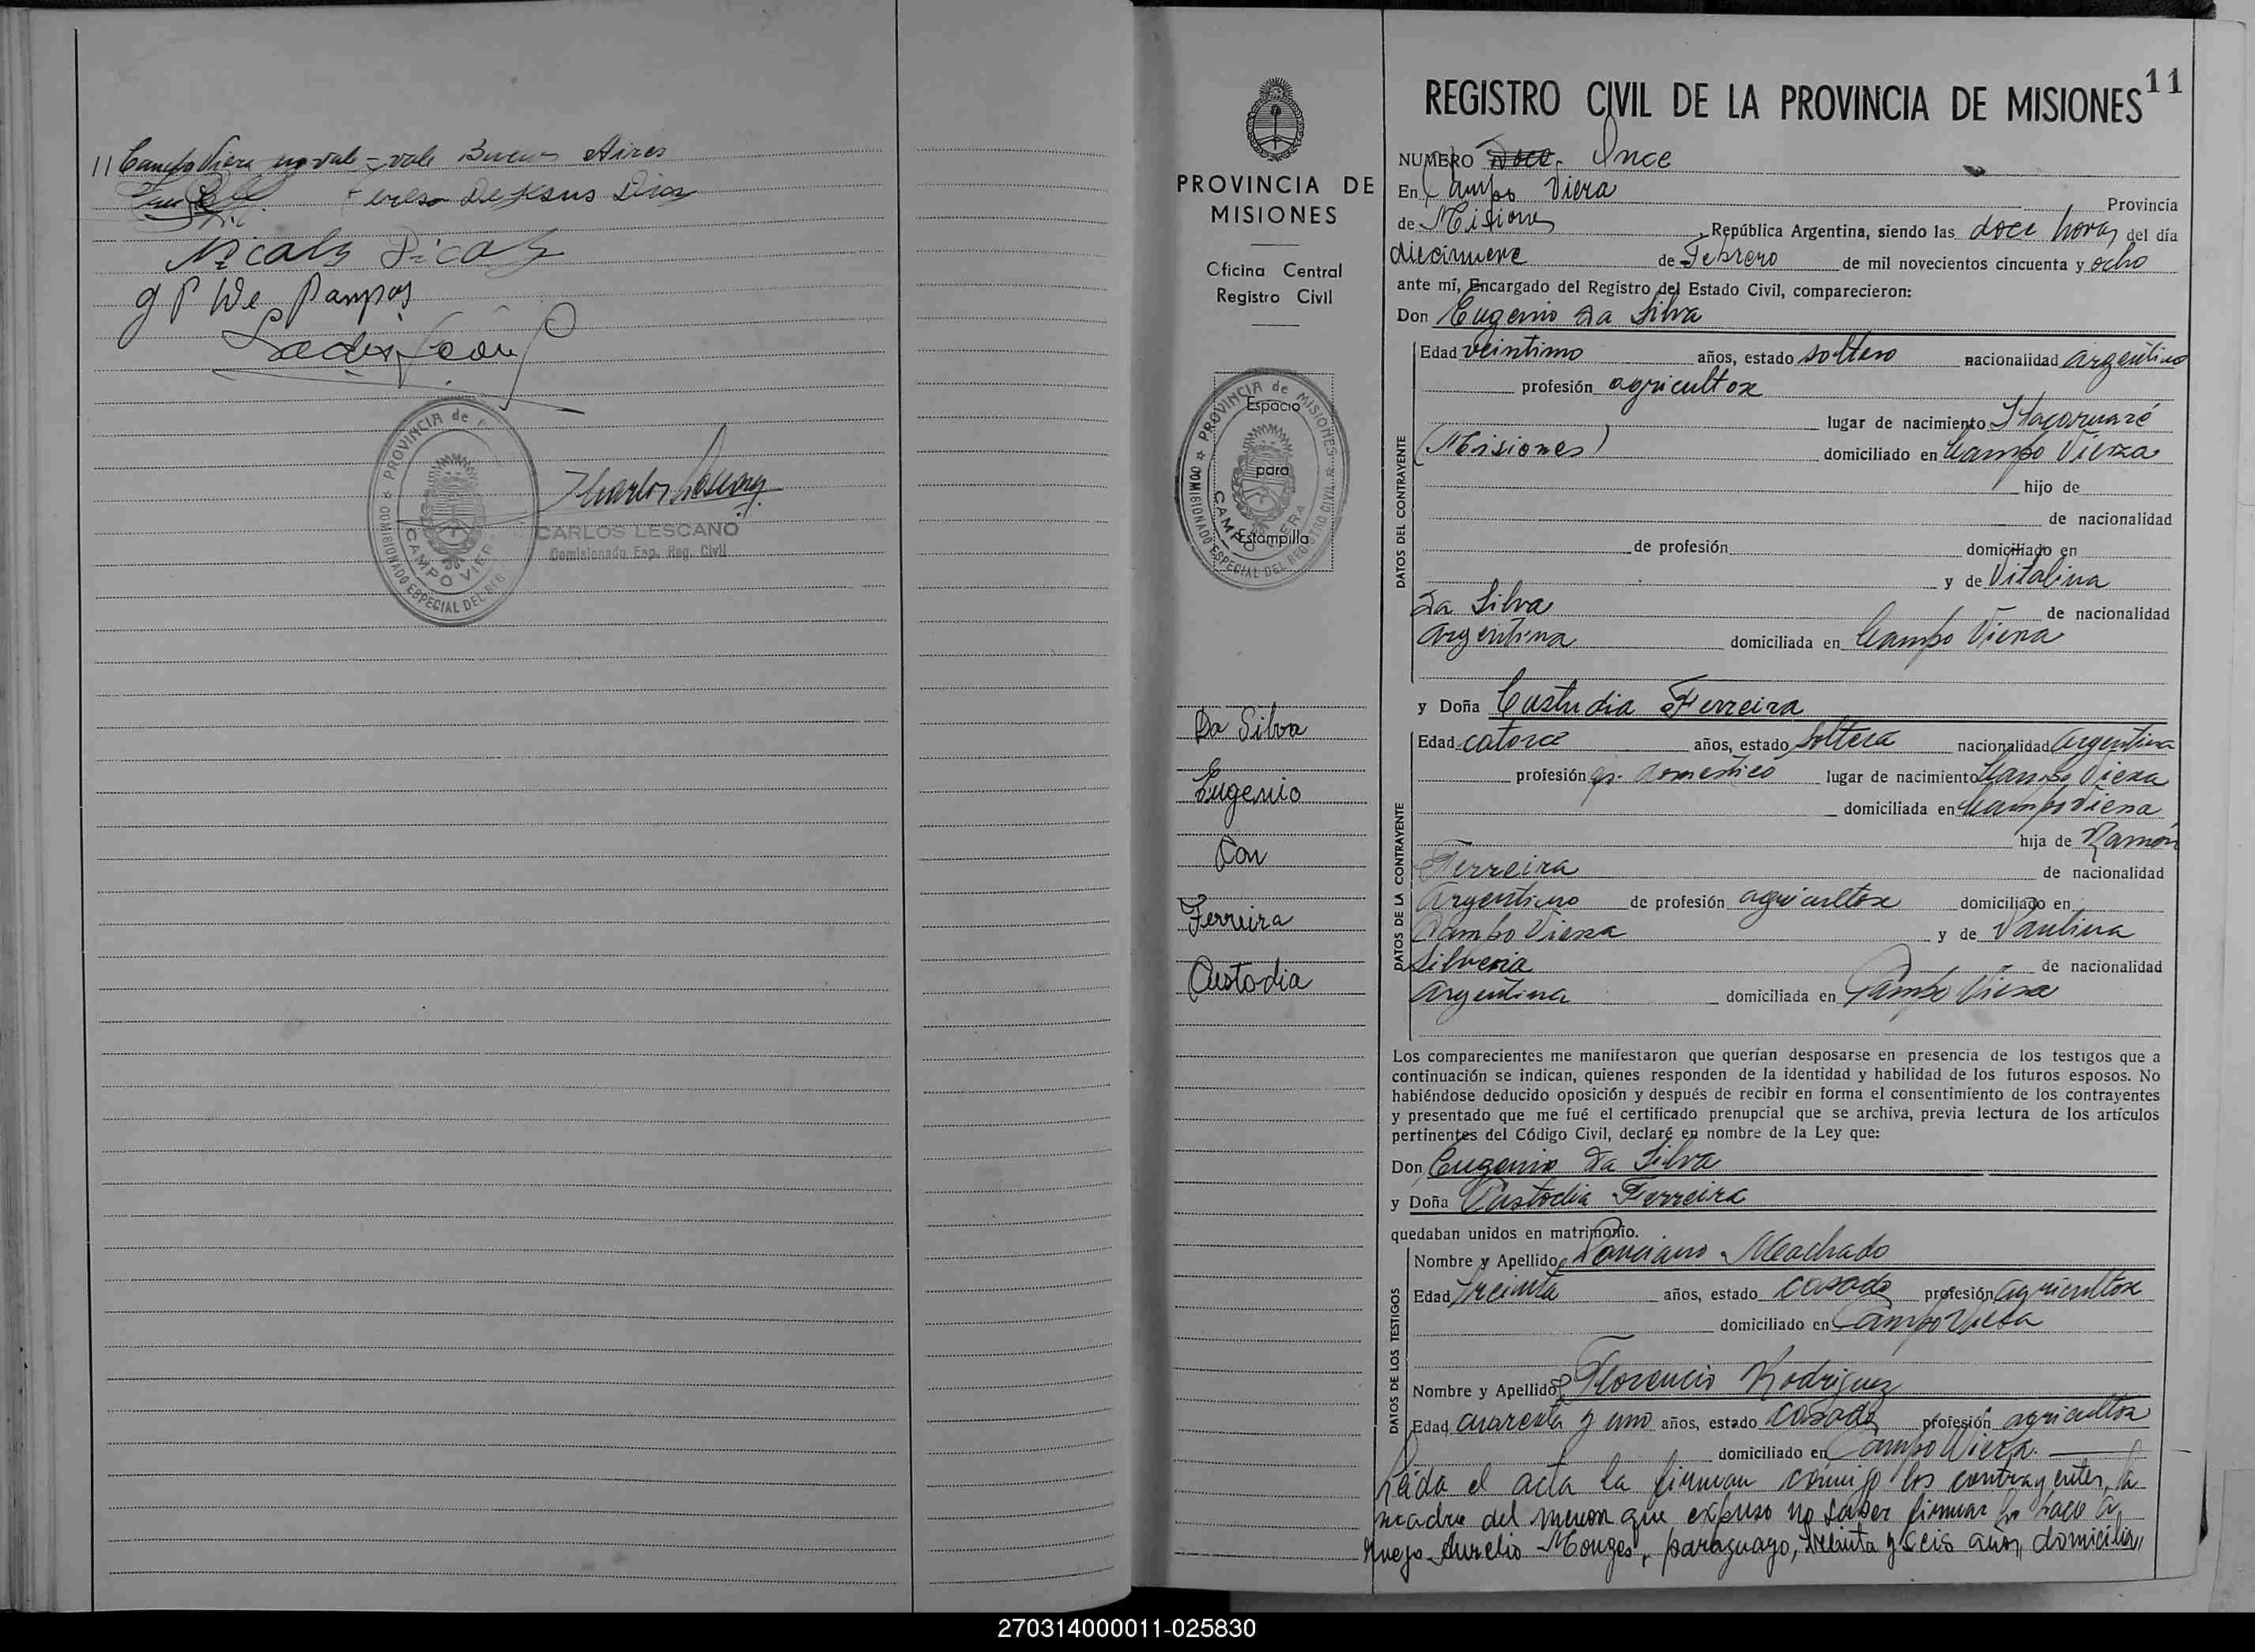 11 Campo Viera no vale = vale Buenos Aires
De Jesus
CARLOS LESCANO
Comisionado Esp. Reg. Civil
PROVINCIA de
COMISIONADO ESPECIAL DEL REG
CAMPO VIER
PROVINCIA DE
MISIONES
Oficina Central
Registro Civil
PROVINCIA de MISIONES
COMISIONADO ESPECIAL DEL REGISTRO CIVIL
CAMPO VIERA
Espacio
para
Estampilla
Da Silva
Eugenio
Con
Ferreira
Custodia
11
REGISTRO CIVIL DE LA PROVINCIA DE MISIONES
NUMERO Doce. Once
En Campo Viera Provincia
de Misiones, República Argentina, siendo las doce horas del día
diecinueve de Febrero de mil novecientos cincuenta y ocho
ante mí, Encargado del Registro del Estado Civil, comparecieron:
Don Eugenio Da Silva
DATOS DEL CONTRAYENTE
Edad veintiuno años, estado soltero nacionalidad argentino
profesión agricultor
lugar de nacimiento Itacaruaré
(Misiones) domiciliado en Campo Viera
hijo de
de nacionalidad
de profesión domiciliado en
y de Vitalina
Da Silva de nacionalidad
argentina domiciliada en Campo Viera
y Doña Custudia Ferreira
DATOS DE LA CONTRAYENTE
Edad catorce años, estado soltera nacionalidad argentina
profesión q. domestico lugar de nacimiento Campo Viera
domiciliada en Campo Viera
hija de Ramón
Ferreira de nacionalidad
argentino de profesión agricultor domiciliado en
Campo Viera y de Paulina
Silveria de nacionalidad
argentina domiciliada en Campo Viera
Los comparecientes me manifestaron que querían desposarse en presencia de los testigos que a
continuación se indican, quienes responden de la identidad y habilidad de los futuros esposos. No
habiéndose deducido oposición y después de recibir en forma el consentimiento de los contrayentes
y presentado que me fué el certificado prenupcial que se archiva, previa lectura de los artículos
pertinentes del Código Civil, declaré en nombre de la Ley que:
Don Eugenio Da Silva
y Doña Custodia Ferreira
quedaban unidos en matrimonio.
DATOS DE LOS TESTIGOS
Nombre y Apellido Ponciano Machado
Edad treinta años, estado casado profesión agricultor
domiciliado en Campo Viera
Nombre y Apellido Florencio Rodriguez
Edad cuarenta y uno años, estado casado profesión agricultor
domiciliado en Campo Viera.
Leída el acta la firman conmigo los contrayentes, la
madre del menor que expuso no saber firmar lo hace a
ruego Aurelio Monges, paraguayo, treinta y seis años, domicilia
270314000011-025830